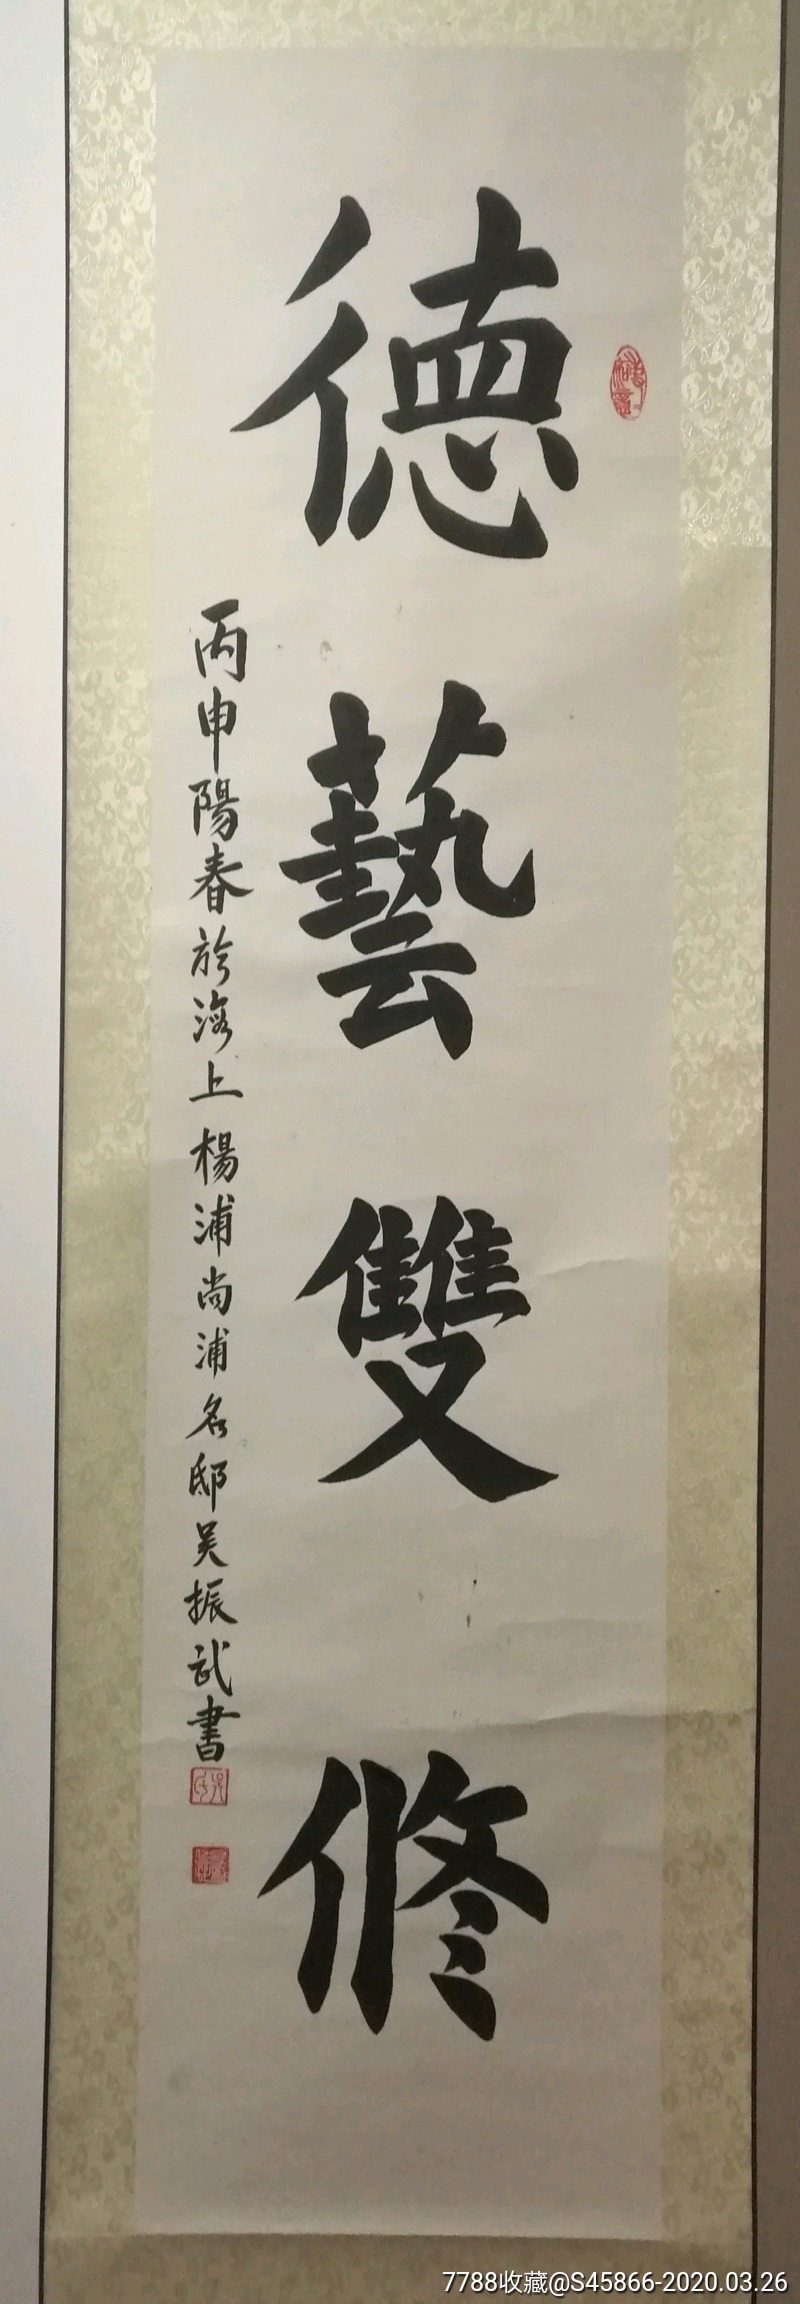 德藝雙修
丙申陽春於海上楊浦尚浦名邸吴振武書
7788收藏@S45866-2020.03.26